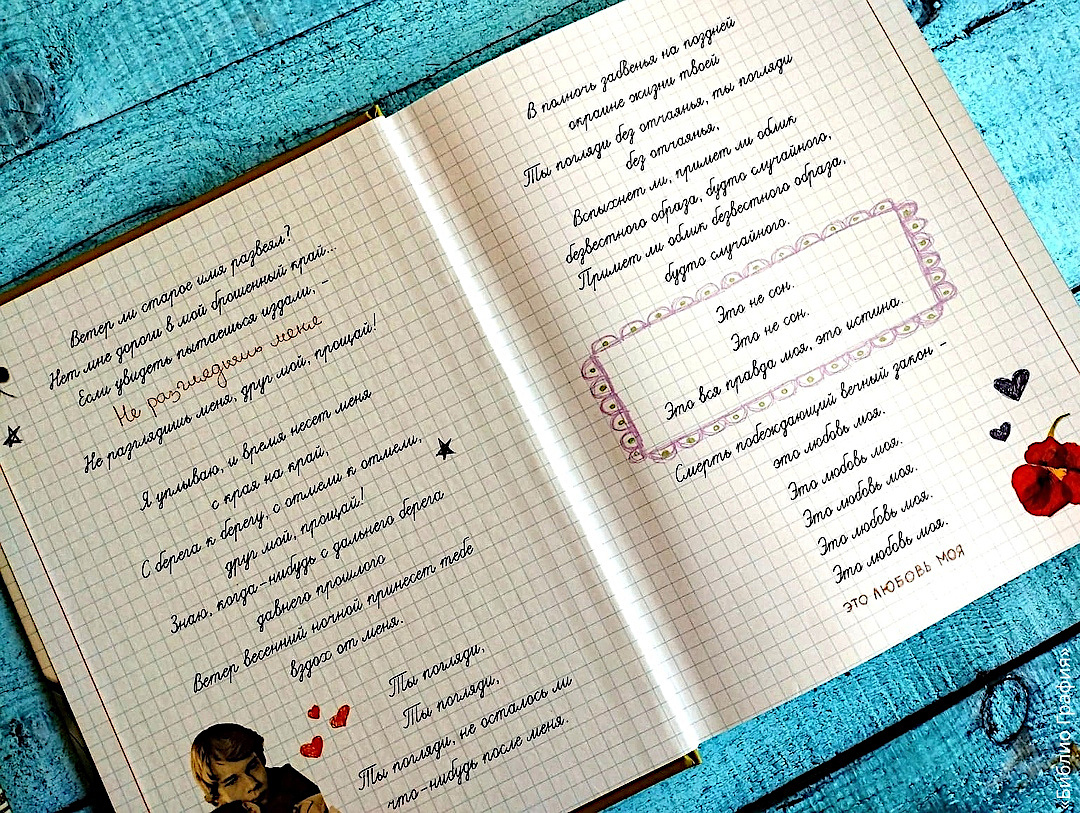 Ветер ли старое имя развеял?
Нет мне дороги в мой брошенный край...
Если увидеть пытаешься издали, –
Не разглядишь меня
Не разглядишь меня, друг мой, прощай!
Я уплываю, и время несет меня
с края на край,
С берега к берегу, с отмели к отмели,
друг мой, прощай!
Знаю, когда-нибудь с дальнего берега
давнего прошлого
Ветер весенний ночной принесет тебе
вздох от меня.
Ты погляди,
Ты погляди,
Ты погляди, не осталось ли
что-нибудь после меня.
В полночь забвенья на поздней
окраине жизни твоей
Ты погляди без отчаянья, ты погляди
без отчаянья,
Вспыхнет ли, примет ли облик
безвестного образа, будто случайного,
Примет ли облик безвестного образа,
будто случайного.
Это не сон.
Это не сон.
Это вся правда моя, это истина.
Смерть побеждающий вечный закон –
это любовь моя.
Это любовь моя.
Это любовь моя.
Это любовь моя.
Это любовь моя.
ЭТО ЛЮБОВЬ МОЯ
«Библио Графия»